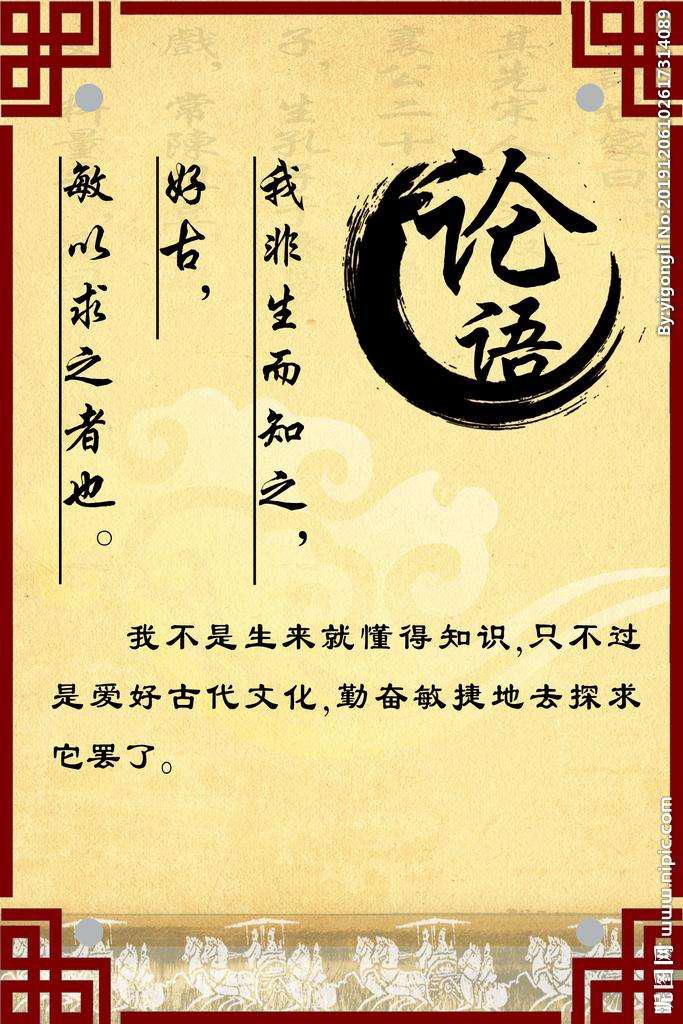 论语
我非生而知之，
好古，
敏以求之者也。
我不是生来就懂得知识,只不过
是爱好古代文化,勤奋敏捷地去探求
它罢了。
By:yigongli No:20191206102617314089
昵图网 www.nipic.com